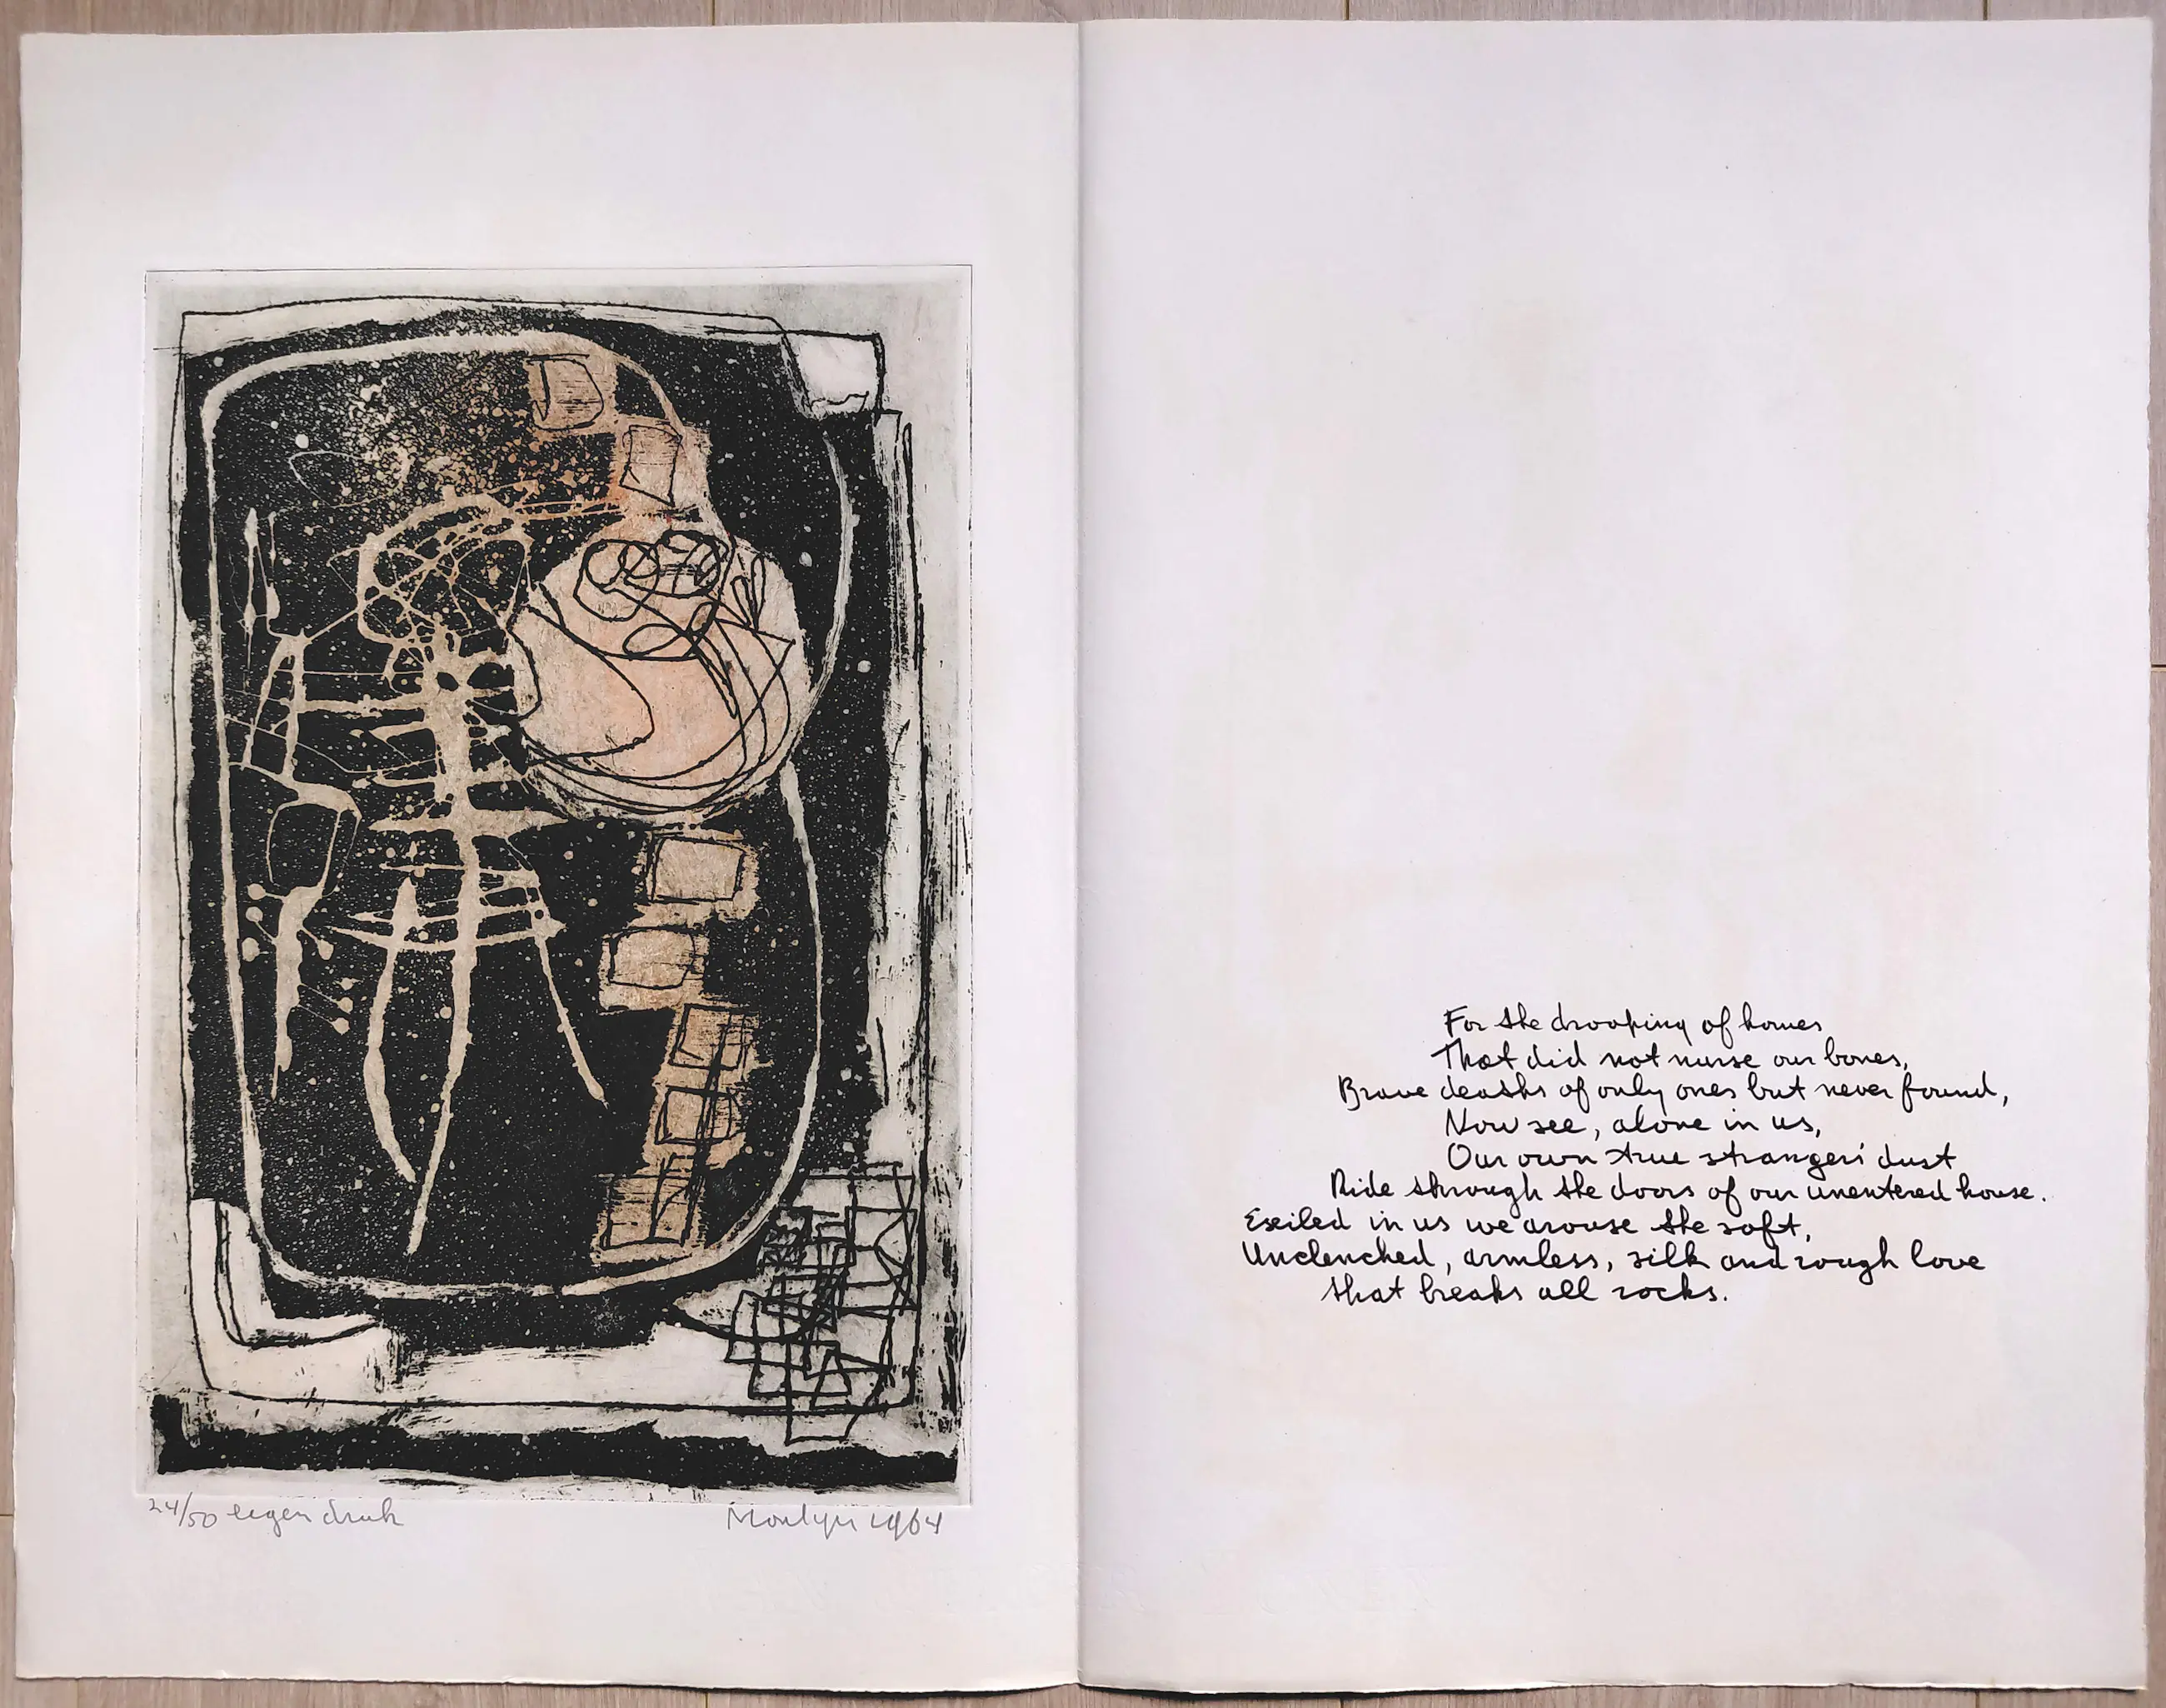 24/50 eigen druk
1964
For the drooping of homes
That did not nurse our bones,
Brave deaths of only ones but never found,
Now see, alone in us,
Our own true strangers' dust
Ride through the doors of our unentered house.
Exiled in us we arouse the soft,
Unclenched, armless, silk and rough love
that breaks all rocks.